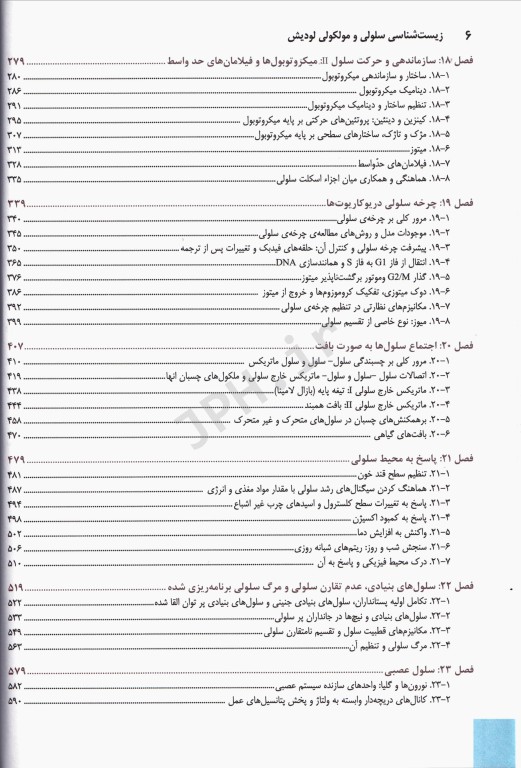 ۶ زیست‌شناسی سلولی و مولکولی لودیش
فصل ۱۸: سازماندهی و حرکت سلول II: میکروتوبول‌ها و فیلامان‌های حد واسط ۲۷۹
۱۸-۱. ساختار و سازماندهی میکروتوبول ۲۸۰
۱۸-۲. دینامیک میکروتوبول ۲۸۶
۱۸-۳. تنظیم ساختار و دینامیک میکروتوبول ۲۹۱
۱۸-۴. کینزین و دینئین: پروتئین‌های حرکتی بر پایه میکروتوبول ۲۹۵
۱۸-۵. مژک و تاژک، ساختارهای سطحی بر پایه میکروتوبول ۳۰۷
۱۸-۶. میتوز ۳۱۳
۱۸-۷. فیلامان‌های حدّواسط ۳۲۸
۱۸-۸. هماهنگی و همکاری میان اجزاء اسکلت سلولی ۳۳۵
فصل ۱۹: چرخه سلولی دریوکاریوت‌ها ۳۳۹
۱۹-۱. مرور کلی بر چرخه‌ی سلولی ۳۴۰
۱۹-۲. موجودات مدل و روش‌های مطالعه‌ی چرخه‌ی سلولی ۳۴۵
۱۹-۳. پیشرفت چرخه سلولی و کنترل آن: حلقه‌های فیدبک و تغییرات پس از ترجمه ۳۵۰
۱۹-۴. انتقال از فاز G1 به فاز S و همانندسازی DNA ۳۶۵
۱۹-۵. گذار G2/M وموتور برگشت‌ناپذیر میتوز ۳۷۶
۱۹-۶. دوک میتوزی، تفکیک کروموزوم‌ها و خروج از میتوز ۳۸۶
۱۹-۷. مکانیزم‌های نظارتی در تنظیم چرخه‌ی سلولی ۳۹۲
۱۹-۸. میوز: نوع خاصی از تقسیم سلولی ۳۹۹
فصل ۲۰: اجتماع سلول‌ها به صورت بافت ۴۰۷
۲۰-۱. مرور کلی بر چسبندگی سلول- سلول و سلول ماتریکس ۴۱۰
۲۰-۲. اتصالات سلول -سلول و سلول- ماتریکس خارج سلولی و ملکول‌های چسبان آنها ۴۱۹
۲۰-۳. ماتریکس خارج سلولی I: تیغه پایه (بازال لامینا) ۴۳۸
۲۰-۴. ماتریکس خارج سلولی II: بافت همبند ۴۴۴
۲۰-۵. برهمکنش‌های چسبان در سلول‌های متحرک و غیر متحرک ۴۵۸
۲۰-۶. بافت‌های گیاهی ۴۷۰
فصل ۲۱: پاسخ به محیط سلولی ۴۷۹
۲۱-۱. تنظیم سطح قند خون ۴۸۱
۲۱-۲. هماهنگ کردن سیگنال‌های رشد سلولی با مقدار مواد مغذی و انرژی ۴۸۷
۲۱-۳. پاسخ به تغییرات سطح کلسترول و اسیدهای چرب غیر اشباع ۴۹۴
۲۱-۴. پاسخ به کمبود اکسیژن ۴۹۸
۲۱-۵. واکنش به افزایش دما ۵۰۲
۲۱-۶. سنجش شب و روز: ریتم‌های شبانه روزی ۵۰۶
۲۱-۷. درک محیط فیزیکی و پاسخ به آن ۵۱۰
فصل ۲۲: سلول‌های بنیادی، عدم تقارن سلولی و مرگ سلولی برنامه‌ریزی شده ۵۱۹
۲۲-۱. تکامل اولیه پستانداران، سلول‌های بنیادی جنینی و سلول‌های بنیادی پر توان القا شده ۵۲۲
۲۲-۲. سلول‌های بنیادی و نیچ‌ها در جانداران پر سلولی ۵۳۲
۲۲-۳. مکانیزم‌های قطبیت سلول و تقسیم نامتقارن سلولی ۵۴۹
۲۲-۴. مرگ سلولی و تنظیم آن ۵۶۳
فصل ۲۳: سلول عصبی ۵۷۹
۲۳-۱. نورون‌ها و گلیا: واحدهای سازنده سیستم عصبی ۵۸۲
۲۳-۲. کانال‌های دریچه‌دار وابسته به ولتاژ و پخش پتانسیل‌های عمل ۵۹۰
JPH.ir